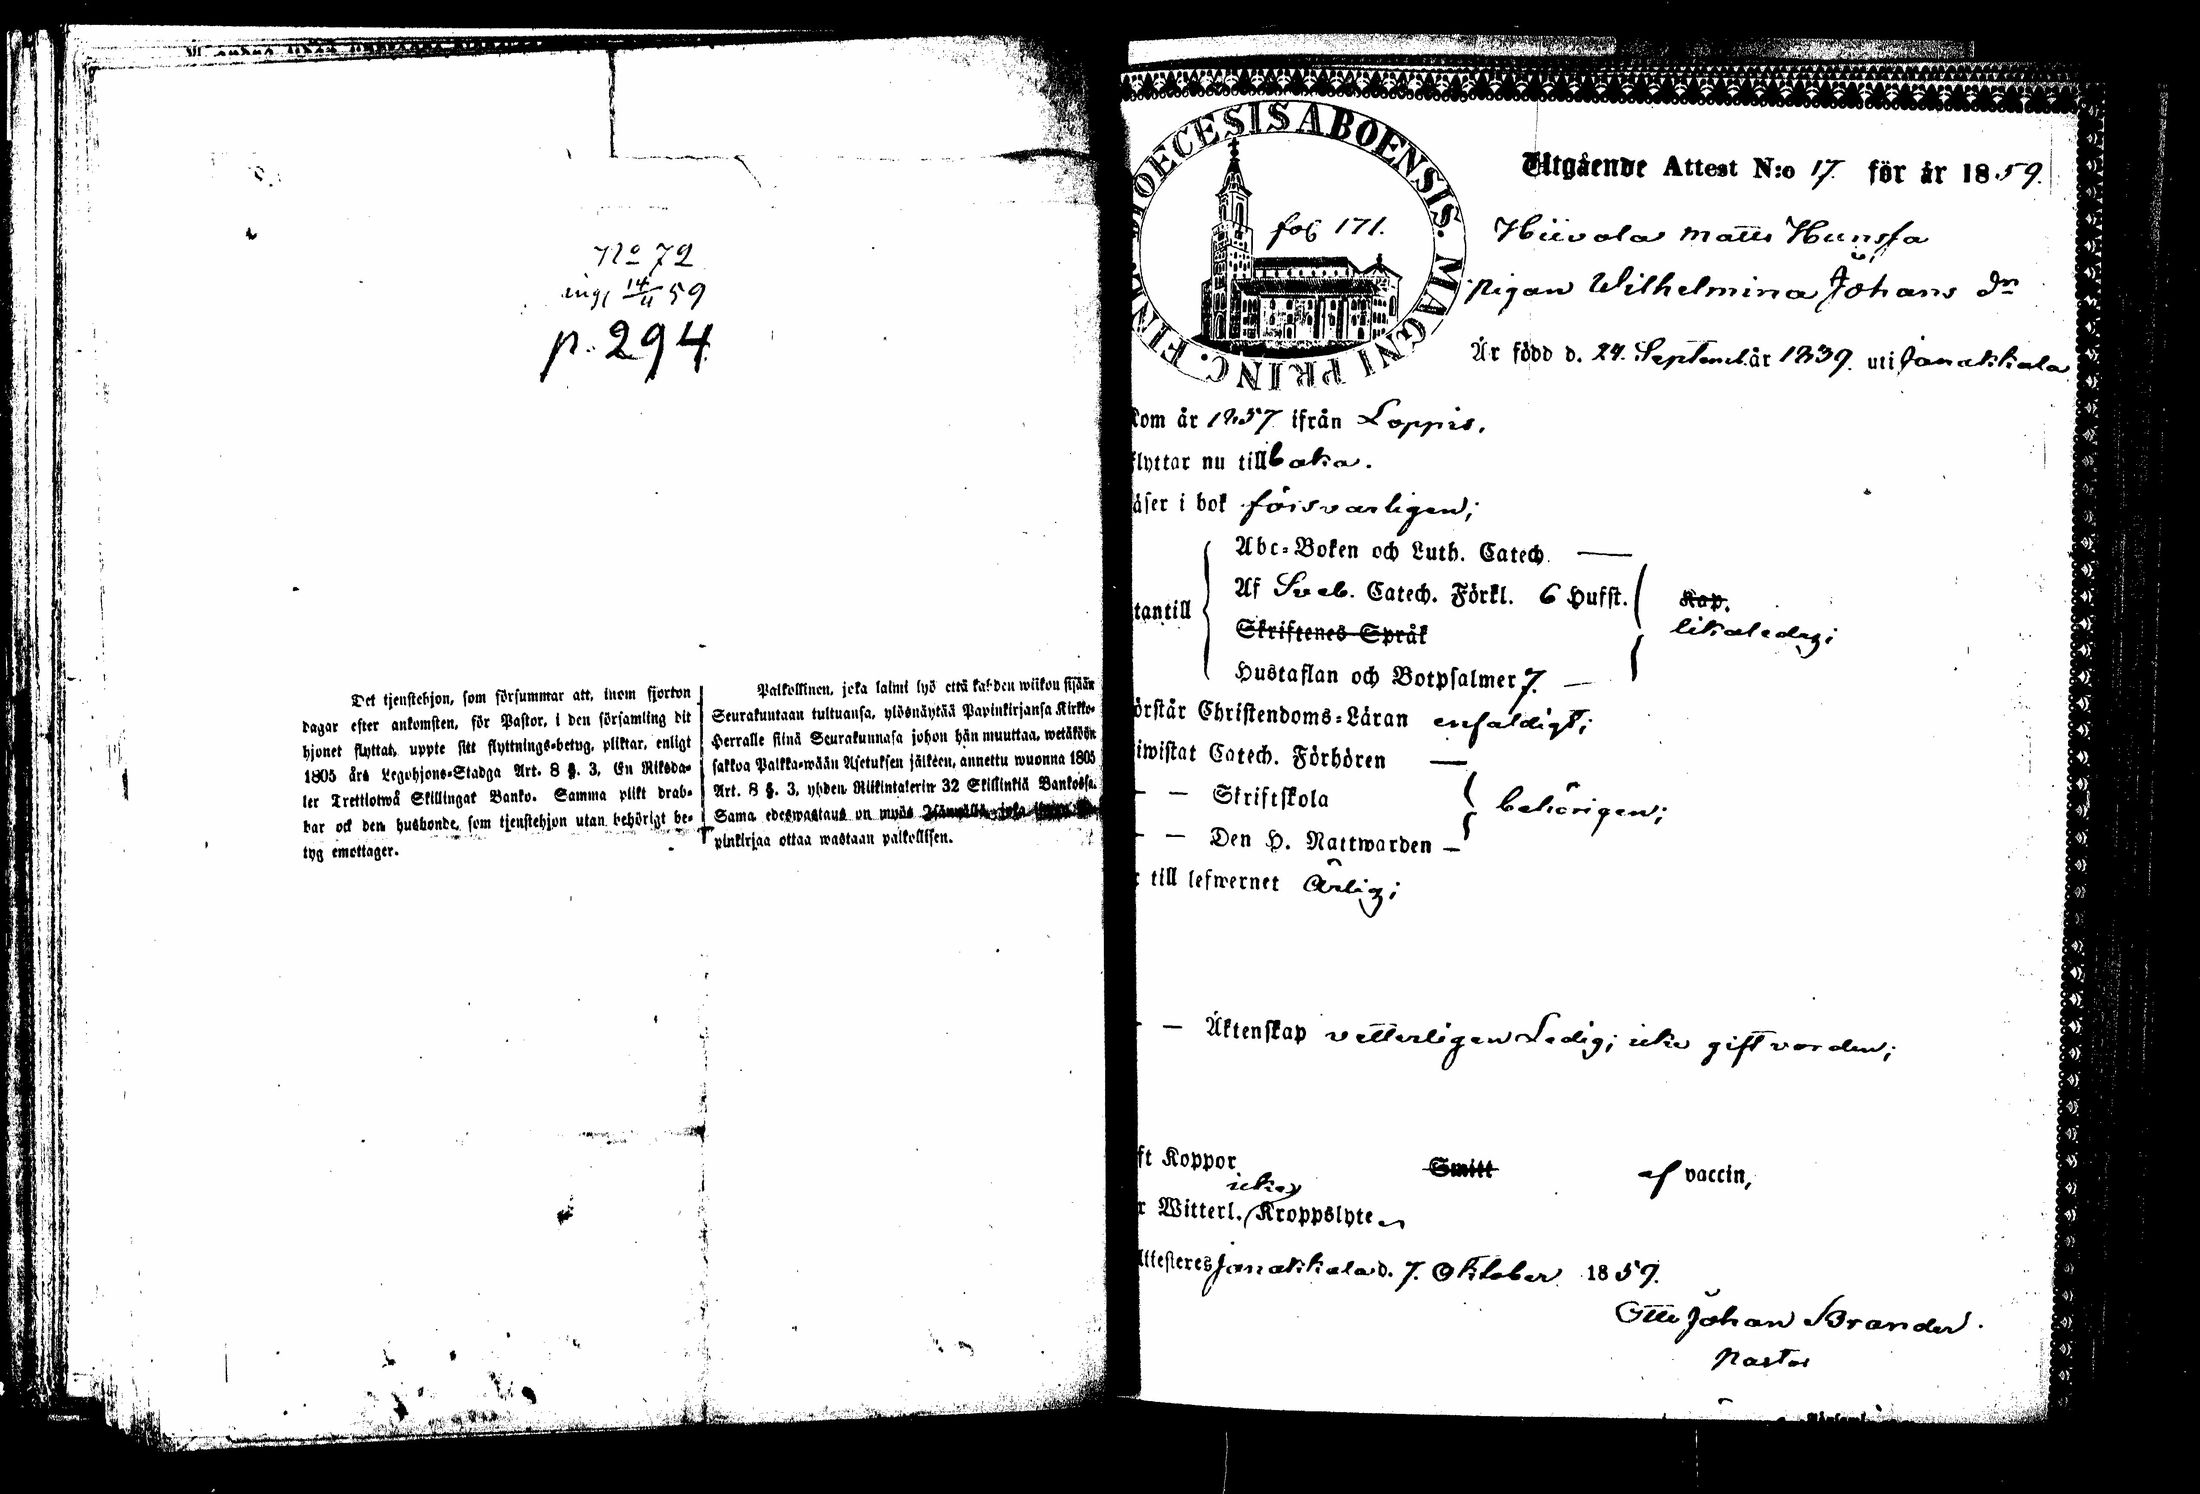 No 72
ing. 14/11 59
p. 294
Det tjenstehjon, som försummar att, inom fjorton
dagar efter ankomsten, för Pastor, i den församling dit
hjonet flyttat, uppte sitt flyttnings-betyg, pliktar, enligt
1805 års Legohjons-Stadga Art. 8 §. 3, En Riksda-
ler Trettiotwå Skillingar Banko. Samma plikt drab-
bar ock den husbonde, som tjenstehjon utan behörigt be-
tyg emottager.
Palkollinen, joka laimi lyö että kahden wiikon sisään
Seurakuntaan tultuansa, ylösnäytää Papinkirjansa Kirkko-
Herralle siinä Seurakunnasa johon hän muuttaa, wetäköön
sakkoa Palkka-wään Asetuksen jälkeen, annettu wuonna 1805
Art. 8 §. 3, yhden Riikintalerin 32 Skillinkiä Bankossa.
Sama edeswastaus on myös Isännällä, joka
pinkirjaa ottaa wastaan palkollisen.
DIOECESIS ABOENSIS. MAGNI PRINC. FINL.
fol 171.
Utgående Attest N:o 17. för år 1859.
Hiivola Matts Hunsfa
pigan Wilhelmina Johans dr
Är född d. 24. September år 1839. uti Janakkala
Kom år 1857 ifrån Loppis.
flyttar nu tillbaka.
äser i bok försvarligen;
Abc-Boken och Luth. Catech. —
Af Sveb. Catech. Förkl. 6 Hufst.
Kap.
likaledes;
tantill
Skriftenes Språk
Hustaflan och Botpsalmer 7. —
örstår Christendoms-Läran enfaldigt;
iwistat Catech. Förhören —
— — Skriftskola
behörigen;
— — Den H. Nattwarden —
r till lefwernet Ärlig;
— — Äktenskap vetterligen Ledig; icke gift vorden;
ft Koppor Smitt af vaccin,
icke
r Witterl. Kroppslyte
Attesteres Janakkala d. 7. Oktober 1859.
Otto Johan Brander.
Pastor